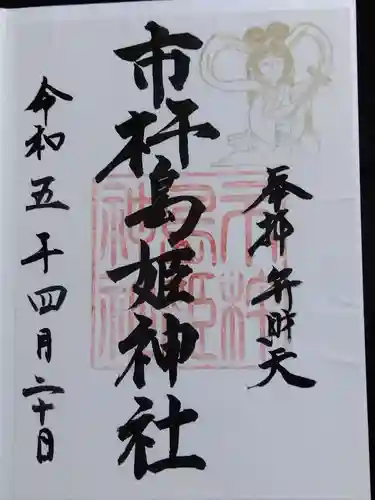 奉拝 弁財天
市杵島姫神社
令和五年四月二十日